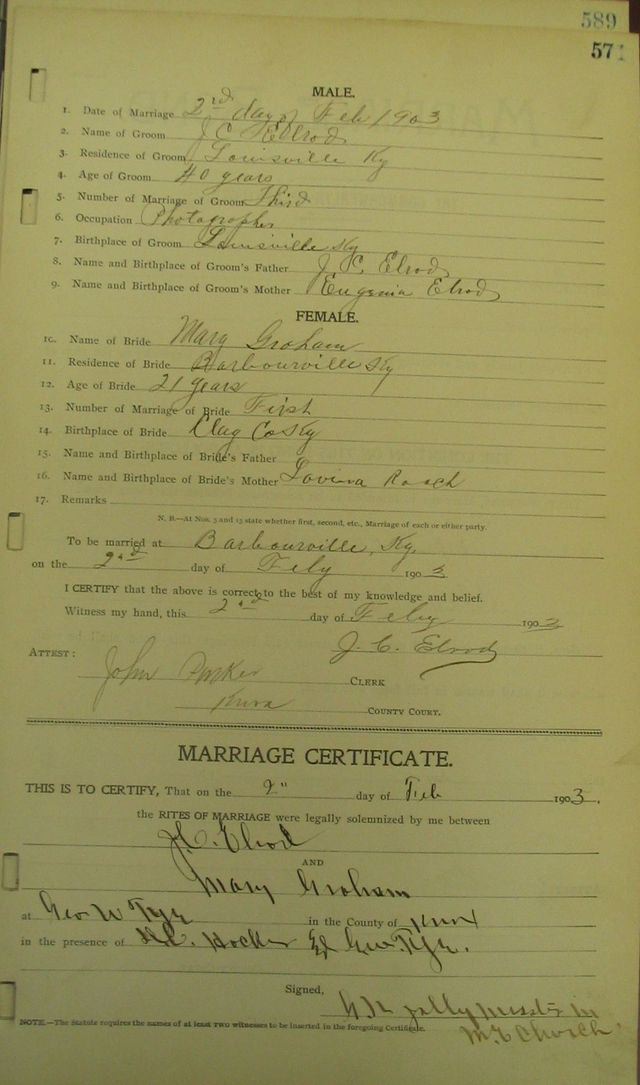 589
571
MALE.
1. Date of Marriage 2nd day of Feb 1903
2. Name of Groom J C Ellrod
3. Residence of Groom Louisville Ky
4. Age of Groom 40 years
5. Number of Marriage of Groom Third
6. Occupation Photographer
7. Birthplace of Groom Louisville Ky
8. Name and Birthplace of Groom's Father J. C. Elrod
9. Name and Birthplace of Groom's Mother Eugenia Elrod
FEMALE.
10. Name of Bride Mary Graham
11. Residence of Bride Barbourville Ky
12. Age of Bride 21 years
13. Number of Marriage of Bride First
14. Birthplace of Bride Clay Co Ky
15. Name and Birthplace of Bride's Father
16. Name and Birthplace of Bride's Mother Lovina Roach
17. Remarks
N. B.—At Nos. 5 and 13 state whether first, second, etc., Marriage of each or either party.
To be married at Barbourville, Ky.
on the 2nd day of Feby 1903
I CERTIFY that the above is correct to the best of my knowledge and belief.
Witness my hand, this 2nd day of Feby 1903
J. C. Elrod
ATTEST: John Parker CLERK
Knox COUNTY COURT.
MARRIAGE CERTIFICATE.
THIS IS TO CERTIFY, That on the 2" day of Feb 1903.
the RITES OF MARRIAGE were legally solemnized by me between
J. C. Elrod
AND
Mary Graham
at Geo W Tye in the County of Knox
in the presence of Geo. Tye.
Signed,
M. E Church
NOTE.—The Statute requires the names of at least TWO witnesses to be inserted in the foregoing Certificate.